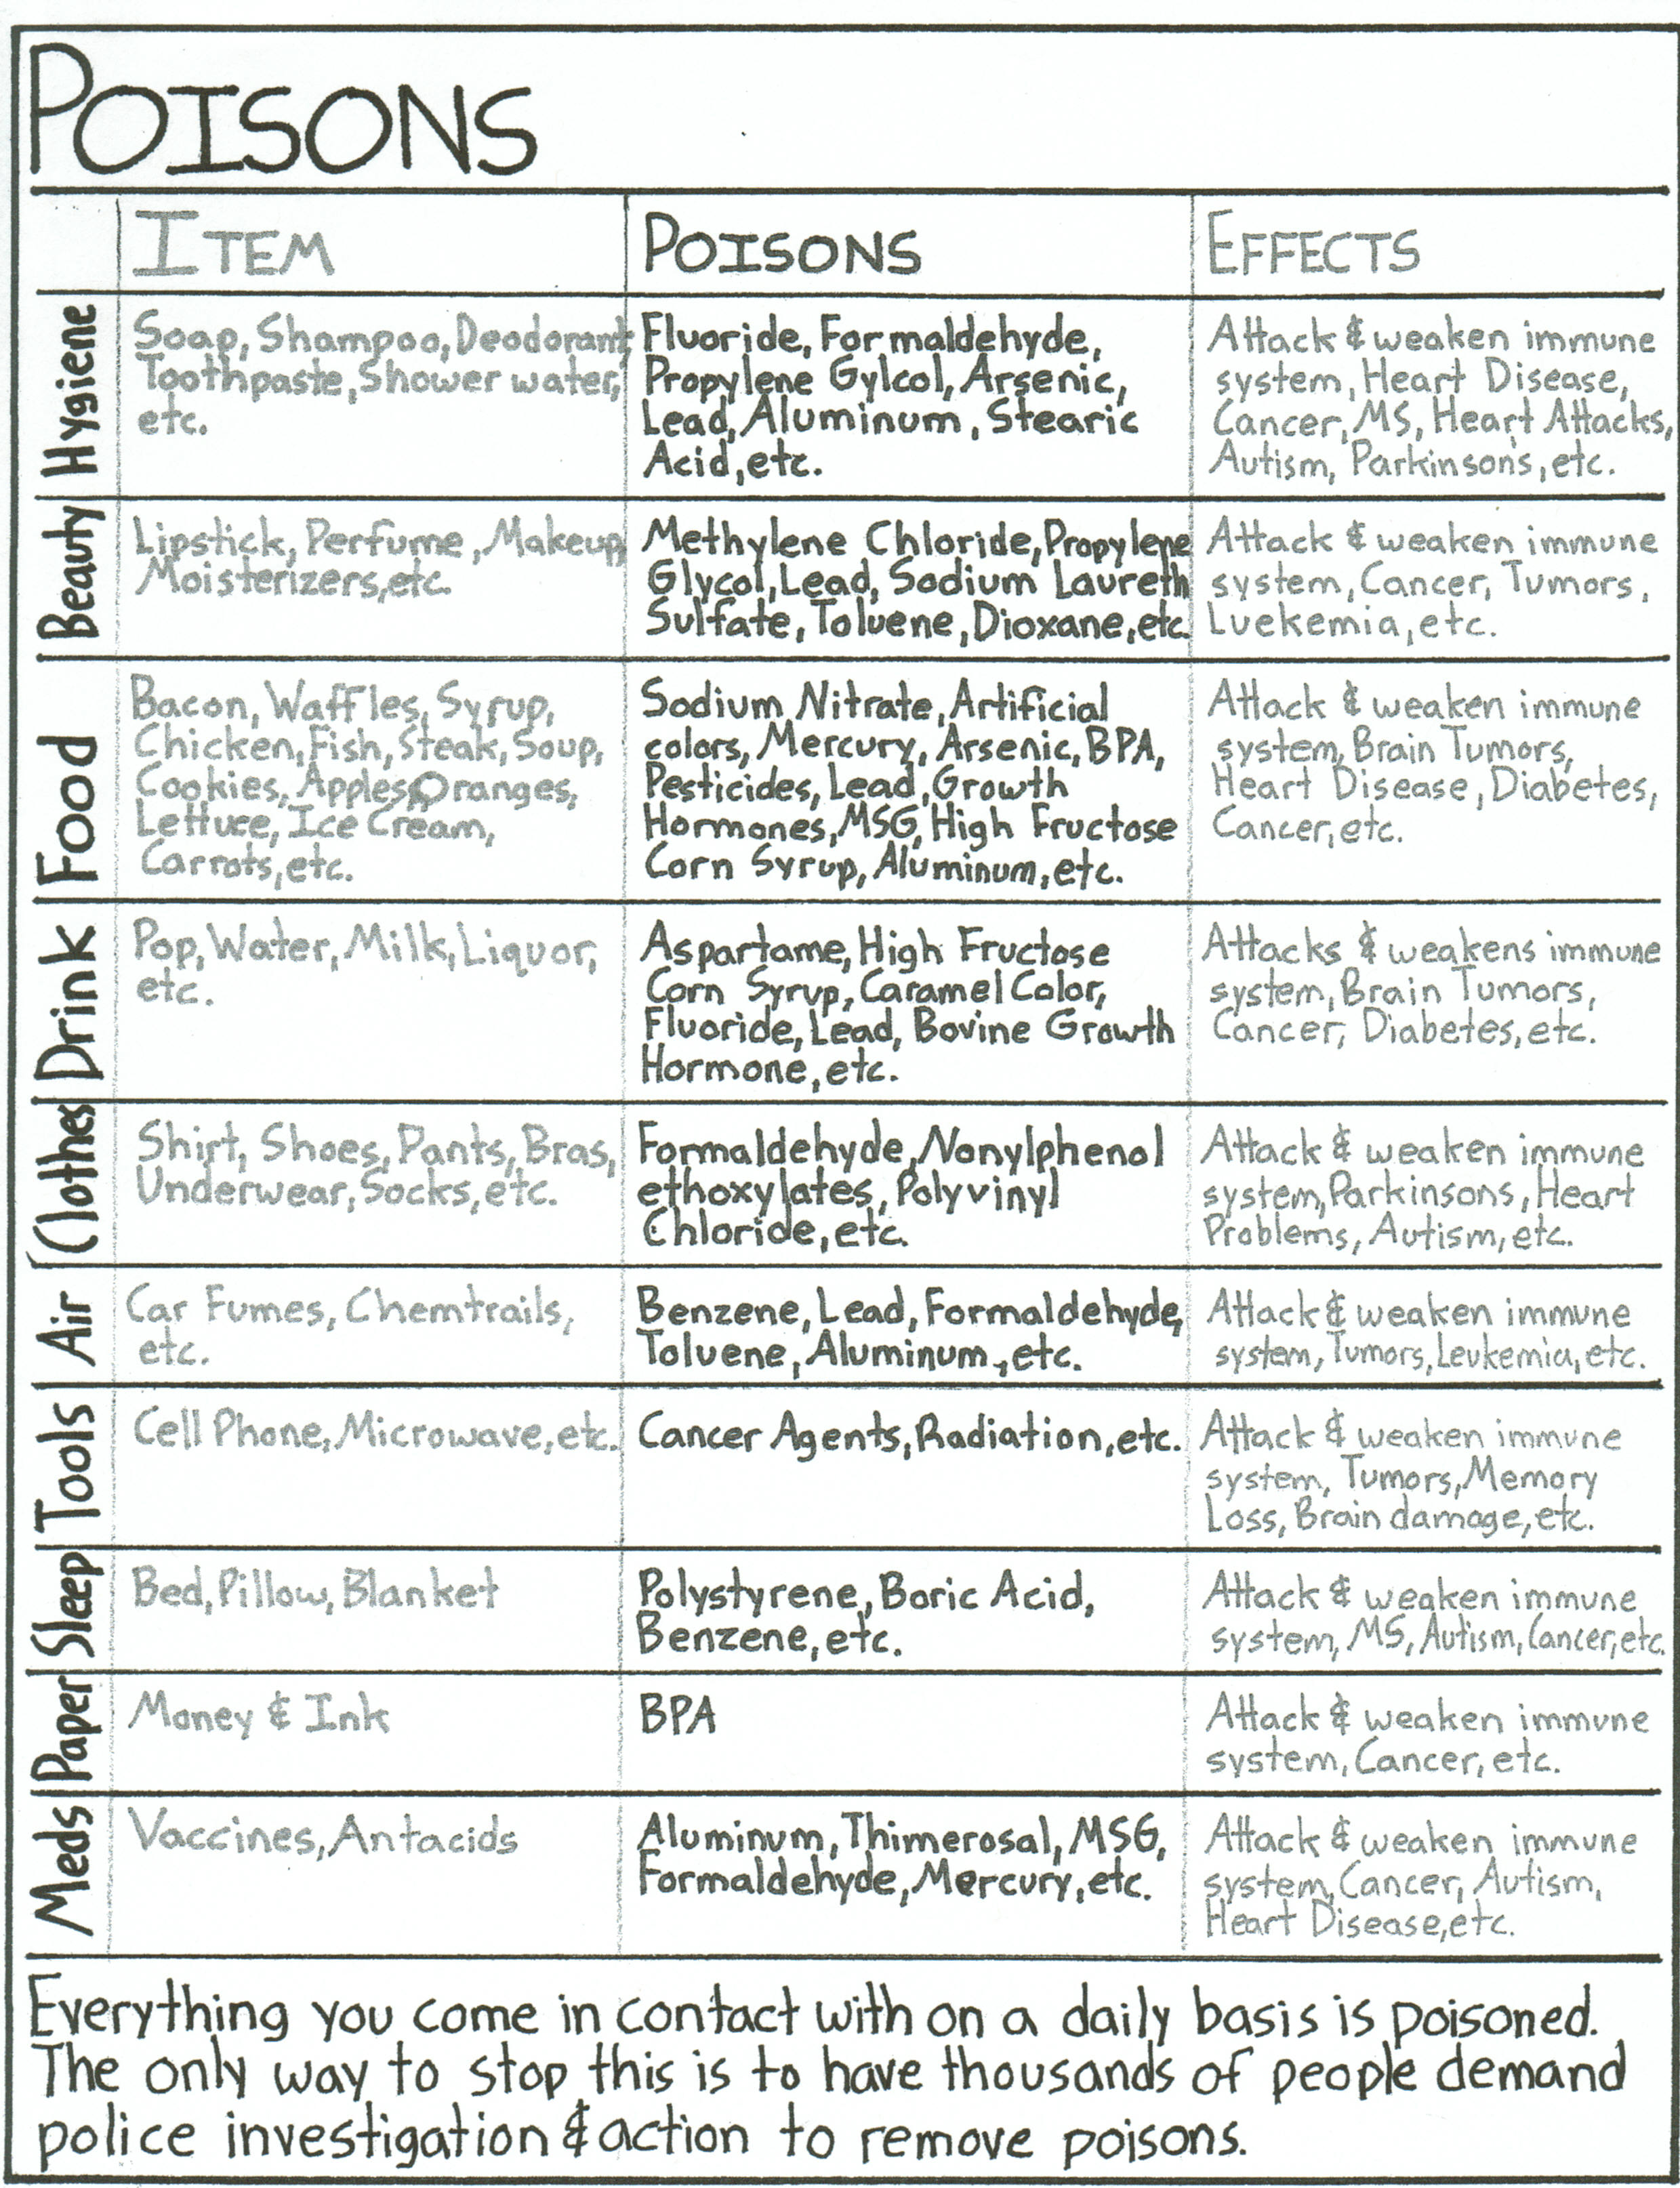 POISONS
ITEM POISONS EFFECTS
Hygiene
Soap, Shampoo, Deodorant,
Toothpaste, Shower water,
etc.
Fluoride, Formaldehyde,
Propylene Gylcol, Arsenic,
Lead, Aluminum, Stearic
Acid, etc.
Attack & weaken immune
system, Heart Disease,
Cancer, MS, Heart Attacks,
Autism, Parkinsons, etc.
Beauty
Lipstick, Perfume, Makeup,
Moisterizers, etc.
Methylene Chloride, Propylene
Glycol, Lead, Sodium Laureth
Sulfate, Toluene, Dioxane, etc.
Attack & weaken immune
system, Cancer, Tumors,
Luekemia, etc.
Food
Bacon, Waffles, Syrup,
Chicken, Fish, Steak, Soup,
Cookies, Apples, Oranges,
Lettuce, Ice Cream,
Carrots, etc.
Sodium Nitrate, Artificial
colors, Mercury, Arsenic, BPA,
Pesticides, Lead, Growth
Hormones, MSG, High Fructose
Corn Syrup, Aluminum, etc.
Attack & weaken immune
system, Brain Tumors,
Heart Disease, Diabetes,
Cancer, etc.
Drink
Pop, Water, Milk, Liquor,
etc.
Aspartame, High Fructose
Corn Syrup, Caramel Color,
Fluoride, Lead, Bovine Growth
Hormone, etc.
Attacks & weakens immune
system, Brain Tumors,
Cancer, Diabetes, etc.
Clothes
Shirt, Shoes, Pants, Bras,
Underwear, Socks, etc.
Formaldehyde, Nonylphenol
ethoxylates, Polyvinyl
Chloride, etc.
Attack & weaken immune
system, Parkinsons, Heart
Problems, Autism, etc.
Air
Car Fumes, Chemtrails,
etc.
Benzene, Lead, Formaldehyde,
Toluene, Aluminum, etc.
Attack & weaken immune
system, Tumors, Leukemia, etc.
Tools
Cell Phone, Microwave, etc.
Cancer Agents, Radiation, etc.
Attack & weaken immune
system, Tumors, Memory
Loss, Brain damage, etc.
Sleep
Bed, Pillow, Blanket
Polystyrene, Boric Acid,
Benzene, etc.
Attack & weaken immune
system, MS, Autism, Cancer, etc.
Paper
Money & Ink
BPA
Attack & weaken immune
system, Cancer, etc.
Meds
Vaccines, Antacids
Aluminum, Thimerosal, MSG,
Formaldehyde, Mercury, etc.
Attack & weaken immune
system, Cancer, Autism,
Heart Disease, etc.
Everything you come in contact with on a daily basis is poisoned.
The only way to stop this is to have thousands of people demand
police investigation & action to remove poisons.